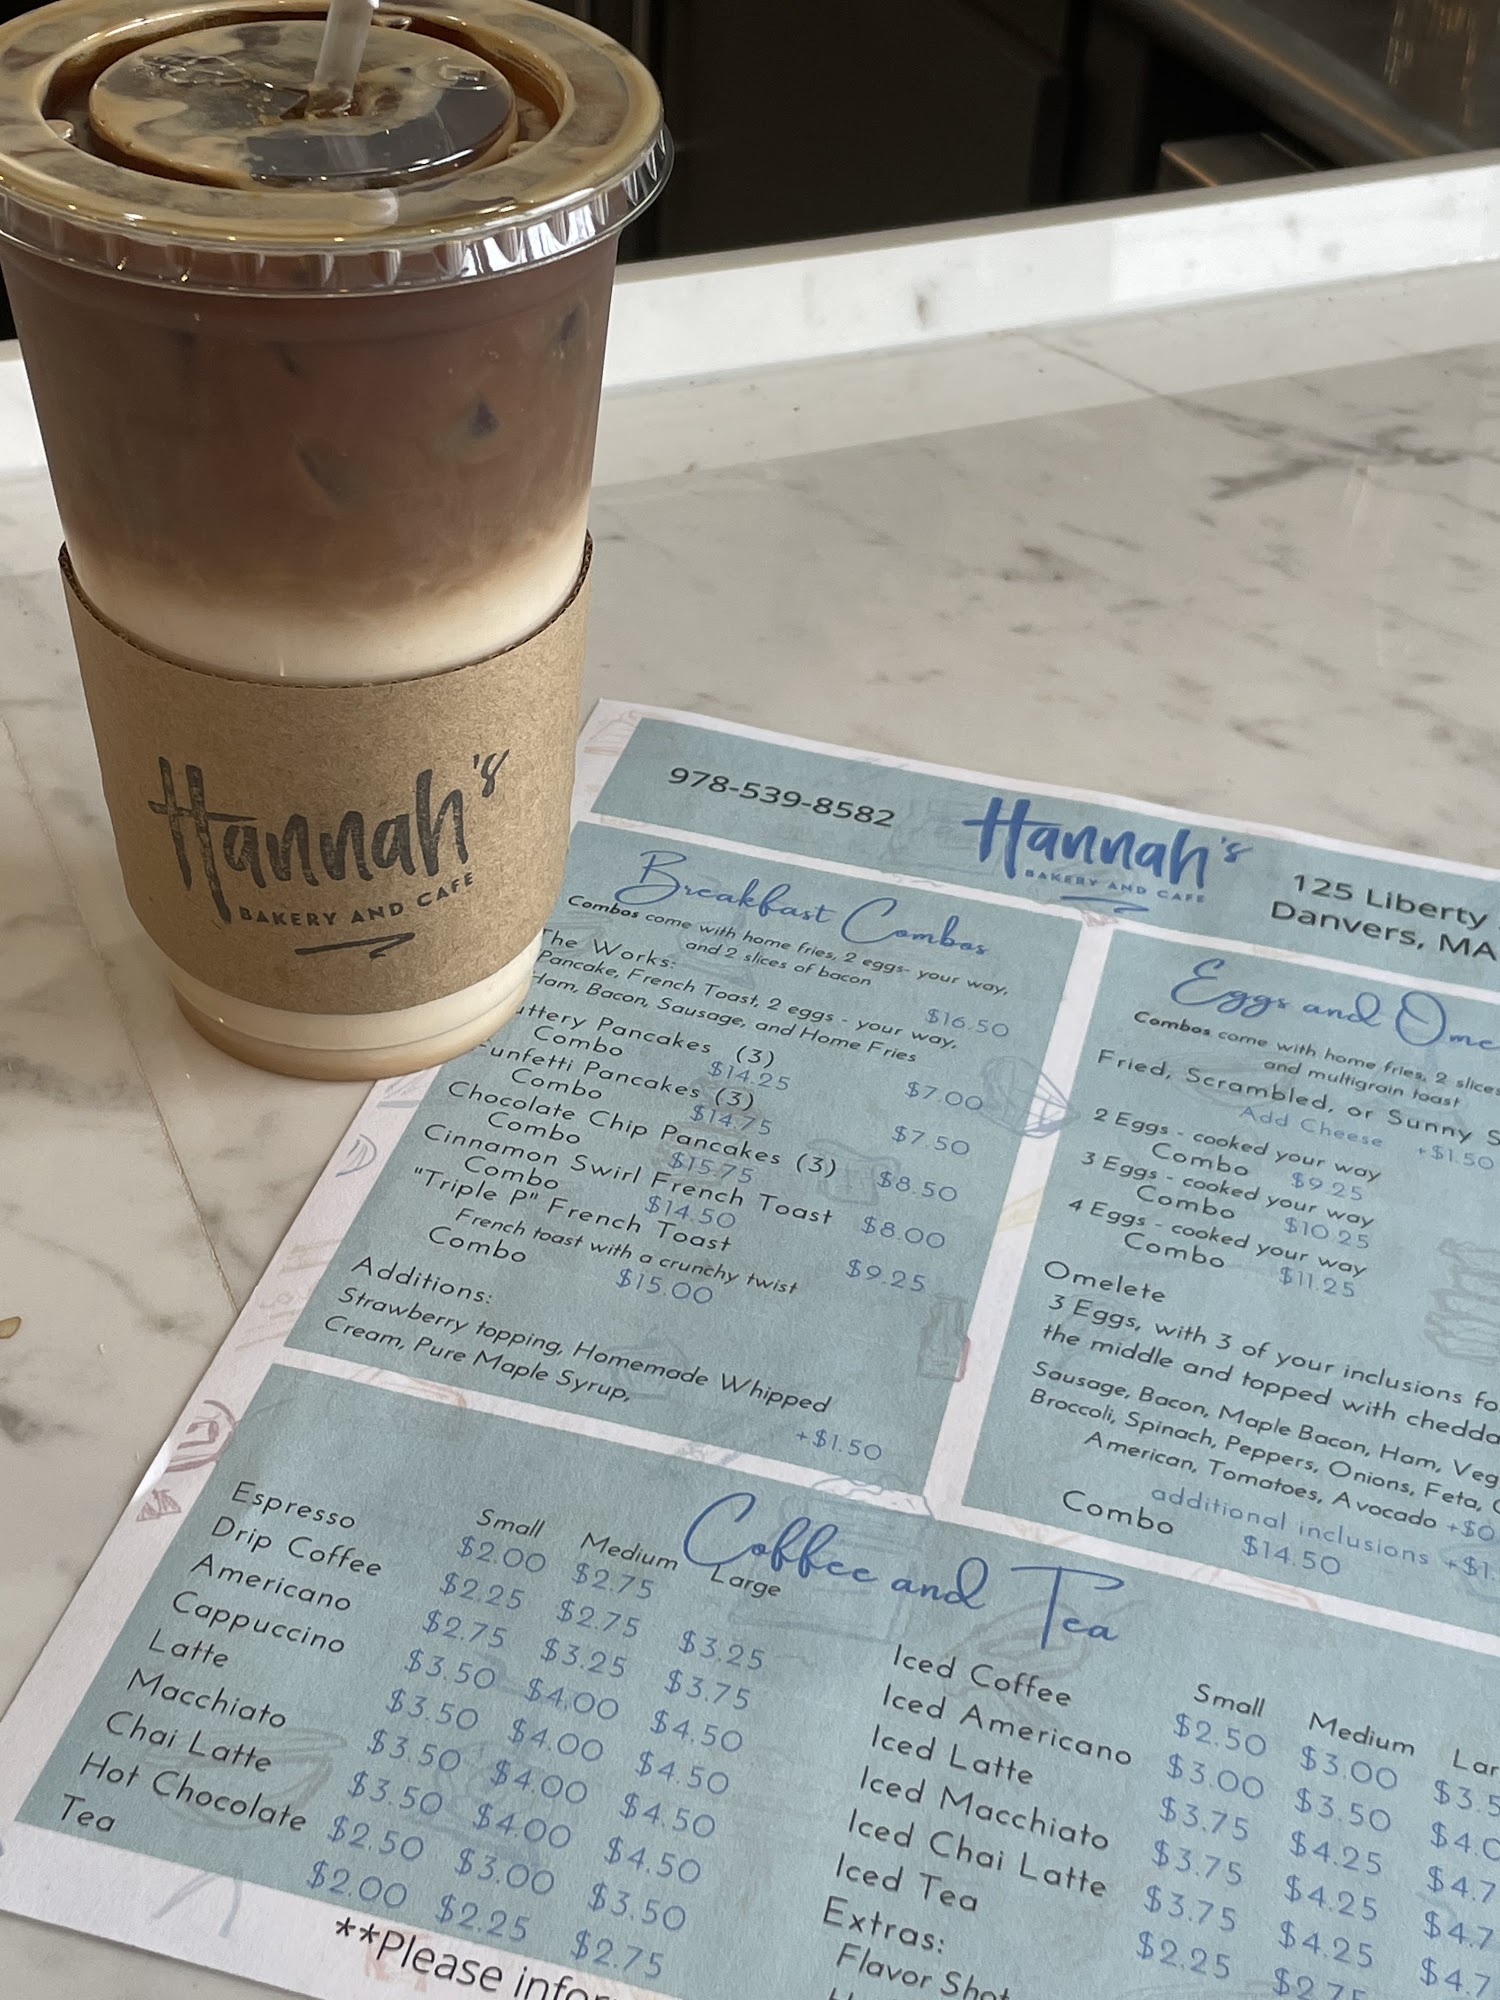 Hannah's
BAKERY AND CAFE
978-539-8582
Hannah's
BAKERY AND CAFE
125 Liberty
Danvers, MA
Breakfast Combos
Combos come with home fries, 2 eggs- your way,
and 2 slices of bacon
The Works: $16.50
Pancake, French Toast, 2 eggs - your way,
Ham, Bacon, Sausage, and Home Fries
Pancakes (3) $7.00
Combo $14.25
Funfetti Pancakes (3) $7.50
Combo $14.75
Chocolate Chip Pancakes (3) $8.50
Combo $15.75
Cinnamon Swirl French Toast $8.00
Combo $14.50
"Triple P" French Toast $9.25
French toast with a crunchy twist
Combo $15.00
Additions:
Strawberry topping, Homemade Whipped
Cream, Pure Maple Syrup,
+$1.50
Eggs and
Combos come with home fries, 2 slices
and multigrain toast
Fried, Scrambled, or Sunny
Add Cheese +$1.50
2 Eggs - cooked your way
Combo $9.25
3 Eggs - cooked your way
Combo $10.25
4 Eggs - cooked your way
Combo $11.25
Omelete
3 Eggs, with 3 of your inclusions
the middle and topped with
Sausage, Bacon, Maple Bacon, Ham,
Broccoli, Spinach, Peppers, Onions, Feta,
American, Tomatoes, Avocado
additional inclusions
Combo $14.50
Coffee and Tea
Small Medium Large
Espresso $2.00 $2.75
Drip Coffee $2.25 $2.75 $3.25
Americano $2.75 $3.25 $3.75
Cappuccino $3.50 $4.00 $4.50
Latte $3.50 $4.00 $4.50
Macchiato $3.50 $4.00 $4.50
Chai Latte $3.50 $4.00 $4.50
Hot Chocolate $2.50 $3.00 $3.50
Tea $2.00 $2.25 $2.75
Small Medium
Iced Coffee $2.50 $3.00
Iced Americano $3.00 $3.50
Iced Latte $3.75 $4.25
Iced Macchiato $3.75 $4.25
Iced Chai Latte $3.75 $4.25
Iced Tea $2.25 $2.75
Extras:
Flavor Shot
**Please